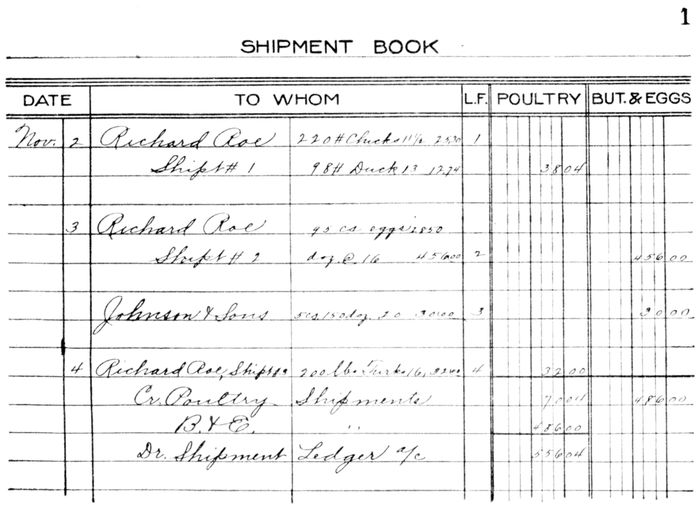 1
SHIPMENT BOOK
DATE TO WHOM L.F. POULTRY BUT. & EGGS
Nov. 2 Richard Roe 220# Chicks 11½ 25.30 1
Shipt # 1 98# Duck 13 12.74 38 04
3 Richard Roe 95 cs eggs 2850
Shipt # 2 doz @ 16 456 00 2 456 00
Johnson & Sons 5 cs 150 doz 20 30 00 3 30 00
4 Richard Roe, Shipt 200 lbs Turks 16, 32 00 4 32 00
Cr. Poultry Shipments 70 04 486 00
B. & E. " 486 00
Dr. Shipment Ledger a/c 556 04